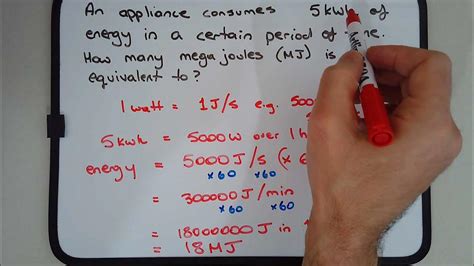 An appliance consumes 5 kWh of
energy in a certain period of
How many mega joules (MJ) is
equivalent to?
1 watt = 1J/s e.g. 500
5 kWh = 5000W over 1 h
energy = 5000 J/s (x 6
x60 x60
= 300000 J/min
x60 x60
= 18000000 J in
= 18 MJ